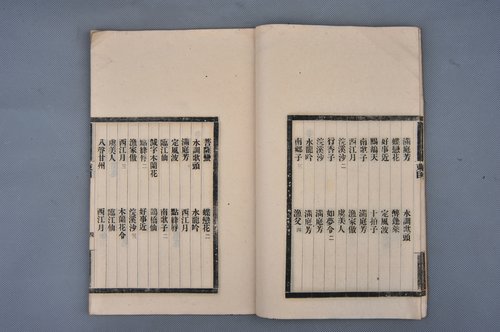 滿庭芳 水調歌頭
蝶戀花 醉蓬萊
好事近 定風波
鷓鴣天 十拍子
南歌子 滿庭芳
西江月 漁家傲
浣溪沙 虞美人
行香子 如夢令二
浣溪沙 滿庭芳
水龍吟 滿庭芳
南鄉子 漁父
菩薩蠻 蝶戀花二
水調歌頭 水龍吟
滿庭芳 西江月
定風波 點絳脣二
臨江仙 南歌子二
減字木蘭花 鵲橋仙
點絳脣二 好事近
漁家傲 浣溪沙
西江月 木蘭花令
虞美人 臨江仙
八聲甘州 西江月